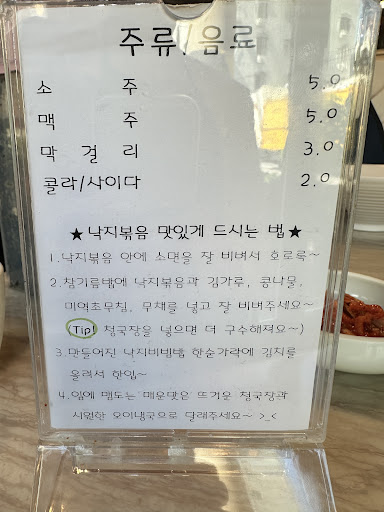 주류/음료
소 주 5.0
맥 주 5.0
막 걸 리 3.0
콜라/사이다 2.0
★낙지볶음 맛있게 드시는 법★
1.낙지볶음 안에 소면을 잘 비벼서 호로록~
2.참기름밥에 낙지볶음과 김가루, 콩나물,
미역초무침, 무채를 넣고 잘 비벼주세요~
(Tip! 청국장을 넣으면 더 구수해져요~)
3.만들어진 낙지비빔밥 한숟가락에 김치를
올려서 한입~
4.입에 맴도는 매운맛은 뜨거운 청국장과
시원한 오이냉국으로 달래주세요~ >_<